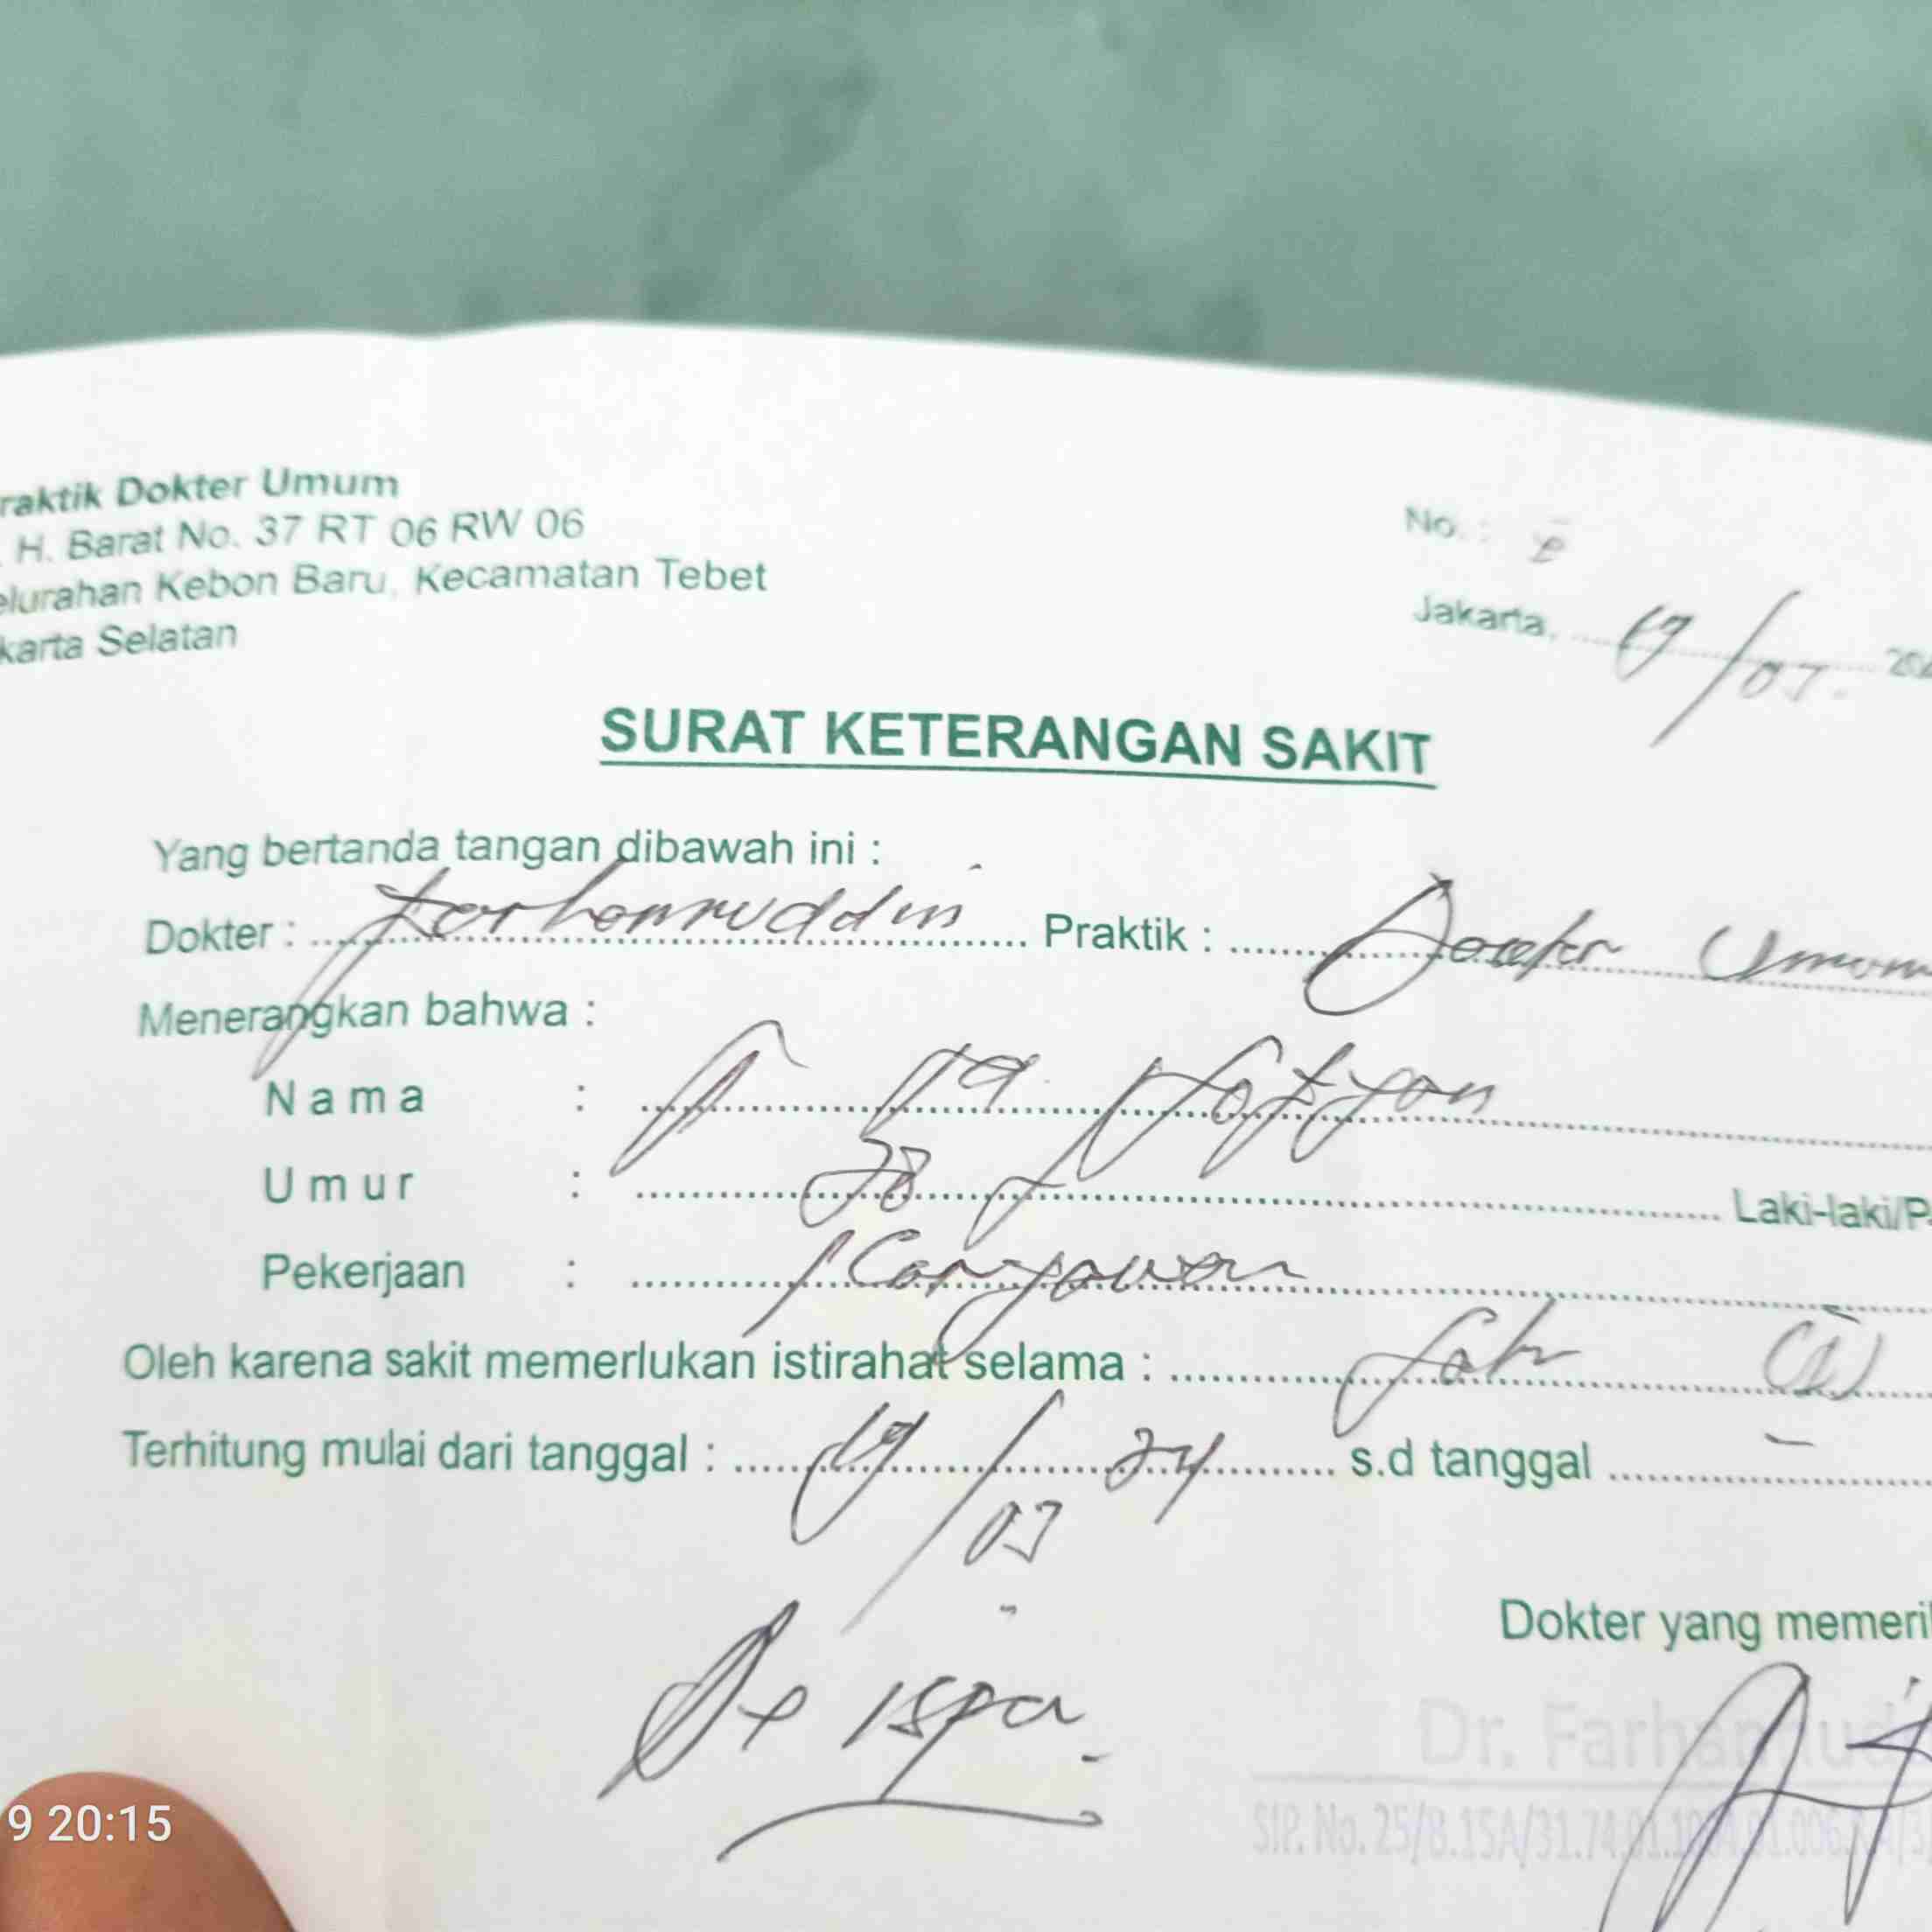 raktik Dokter Umum
. H. Barat No. 37 RT 06 RW 06
elurahan Kebon Baru, Kecamatan Tebet
karta Selatan
No. :
Jakarta, 19/03 202
SURAT KETERANGAN SAKIT
Yang bertanda tangan dibawah ini :
Dokter : Farhanruddin Praktik : Dokter Umum
Menerangkan bahwa :
Nama :
Umur : 28 Laki-laki/P
Pekerjaan : Karyawan
Oleh karena sakit memerlukan istirahat selama : Satu (1)
Terhitung mulai dari tanggal : 19/03 24 s.d tanggal
Dx ISPA
Dokter yang memeri
Dr. Farhannud
SIP. No. 25/B.15A/31.74.01
9 20:15